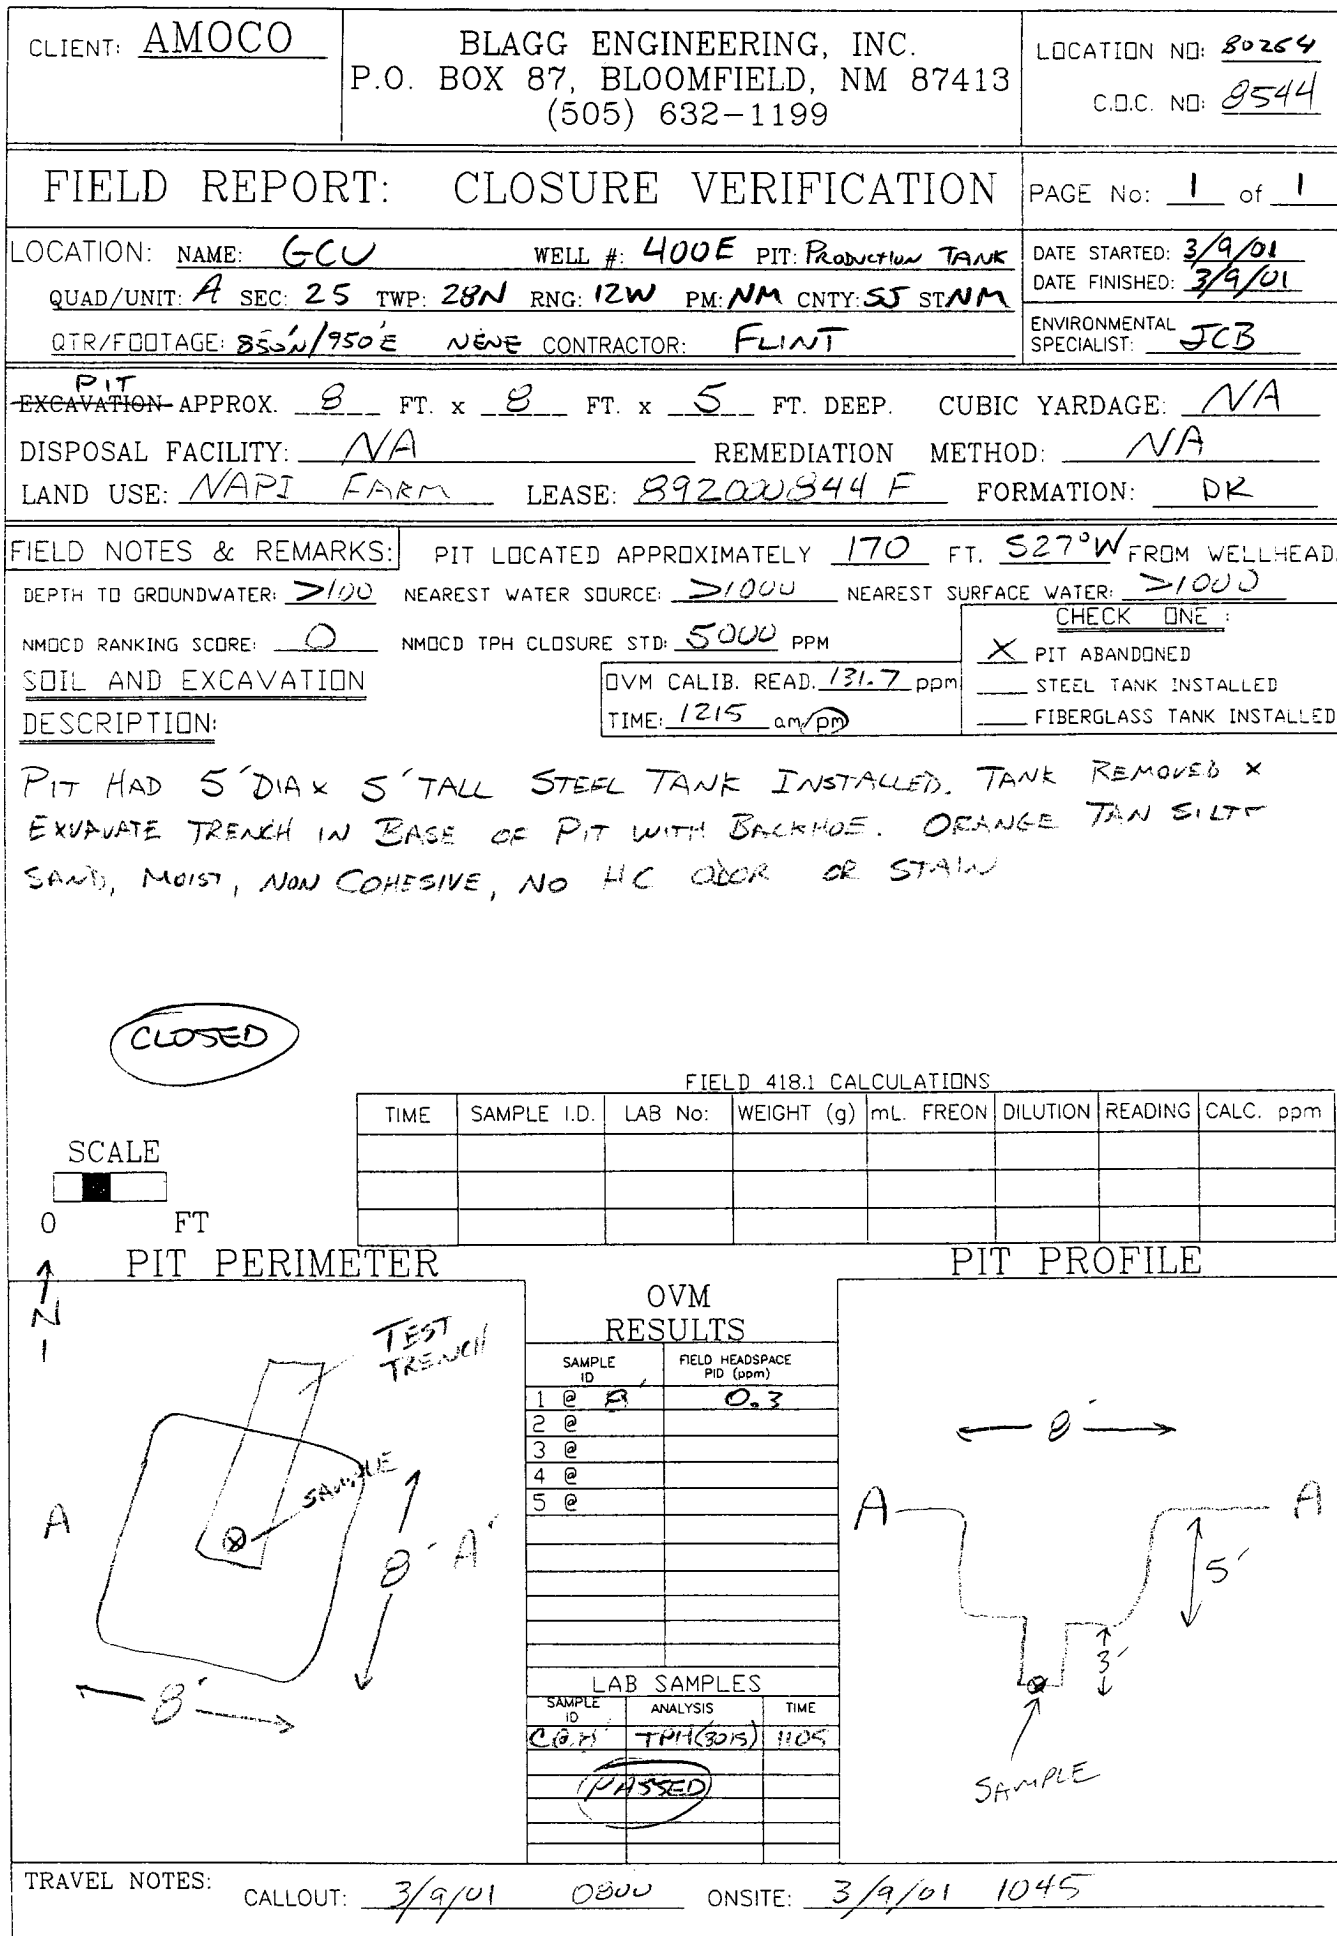 CLIENT: AMOCO
BLAGG ENGINEERING, INC.
P.O. BOX 87, BLOOMFIELD, NM 87413
(505) 632-1199
LOCATION NO: 80264
C.O.C. NO: 8544
FIELD REPORT: CLOSURE VERIFICATION
PAGE No: 1 of 1
LOCATION: NAME: GCU WELL #: 400E PIT: PRODUCTION TANK
QUAD/UNIT: A SEC: 25 TWP: 28N RNG: 12W PM: NM CNTY: SJ ST NM
QTR/FOOTAGE: 850'N/950'E NENE CONTRACTOR: FLINT
DATE STARTED: 3/9/01
DATE FINISHED: 3/9/01
ENVIRONMENTAL
SPECIALIST: JCB
PIT
EXCAVATION APPROX. 8 FT. x 8 FT. x 5 FT. DEEP. CUBIC YARDAGE: NA
DISPOSAL FACILITY: NA REMEDIATION METHOD: NA
LAND USE: NAPI FARM LEASE: 892000844 F FORMATION: DK
FIELD NOTES & REMARKS: PIT LOCATED APPROXIMATELY 170 FT. S27°W FROM WELLHEAD.
DEPTH TO GROUNDWATER: >100 NEAREST WATER SOURCE: >1000 NEAREST SURFACE WATER: >1000
NMOCD RANKING SCORE: 0 NMOCD TPH CLOSURE STD: 5000 PPM
CHECK ONE :
X PIT ABANDONED
STEEL TANK INSTALLED
FIBERGLASS TANK INSTALLED
SOIL AND EXCAVATION
DESCRIPTION:
OVM CALIB. READ. 131.7 ppm
TIME: 1215 am/pm
PIT HAD 5' DIA x 5' TALL STEEL TANK INSTALLED. TANK REMOVED x
EXVAVATE TRENCH IN BASE OF PIT WITH BACKHOE. ORANGE TAN SILTY
SAND, MOIST, NON COHESIVE, NO HC ODOR OR STAIN
CLOSED
FIELD 418.1 CALCULATIONS
TIME SAMPLE I.D. LAB No: WEIGHT (g) mL. FREON DILUTION READING CALC. ppm
SCALE
0 FT
PIT PERIMETER
N
TEST
TRENCH
SAMPLE
A
A'
8'
8'
OVM
RESULTS
SAMPLE
ID
FIELD HEADSPACE
PID (ppm)
1 @ 8' 0.3
2 @
3 @
4 @
5 @
LAB SAMPLES
SAMPLE
ID
ANALYSIS
TIME
TPH(8015) 1105
PASSED
PIT PROFILE
8'
A
A'
5'
3'
SAMPLE
TRAVEL NOTES: CALLOUT: 3/9/01 0800 ONSITE: 3/9/01 1045